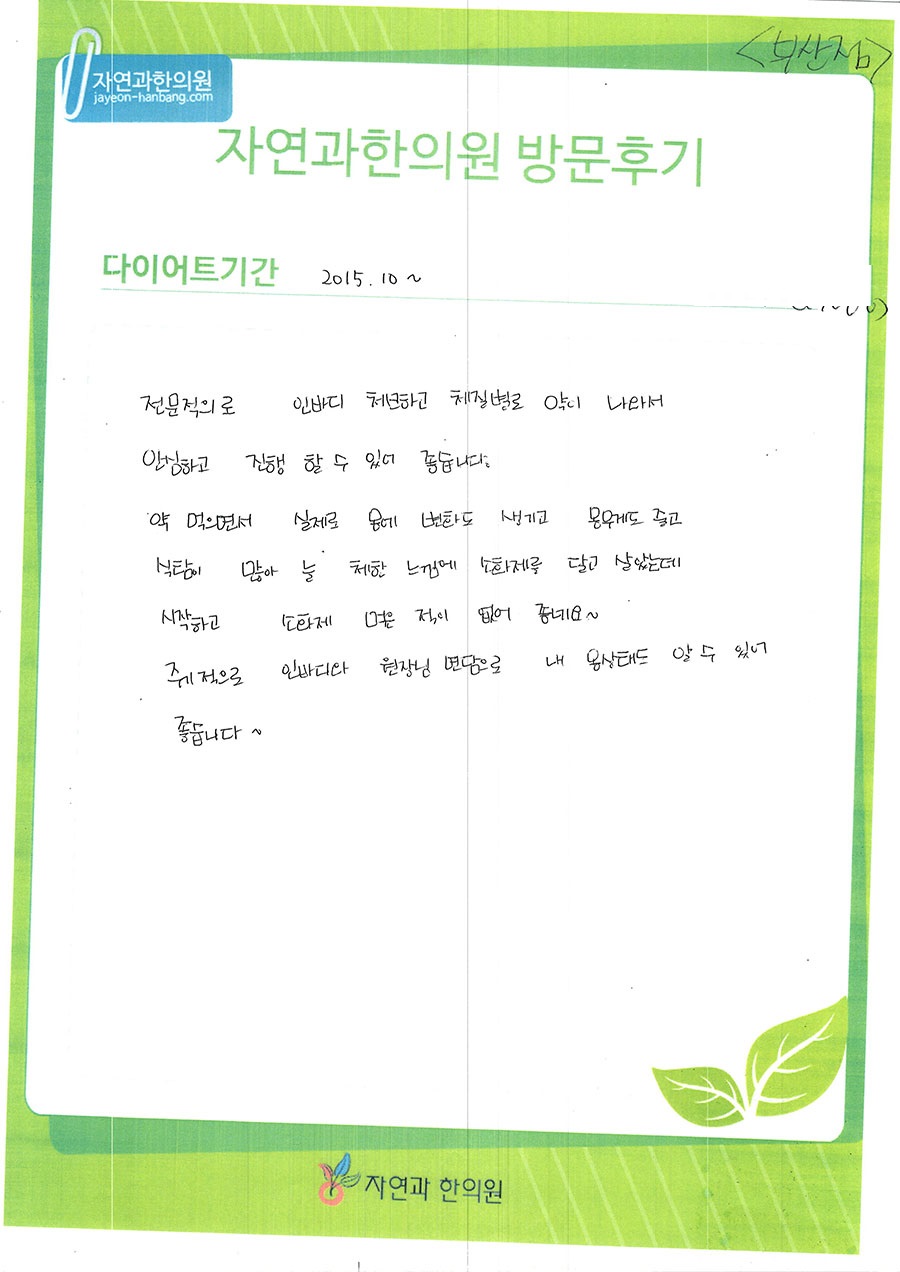 <부산점>
자연과한의원
jayeon-hanbang.com
자연과한의원 방문후기
다이어트기간 2015.10 ~
전문적의로 인바디 처방하고 체질별로 약이 나와서
안심하고 진행 할 수 있어 좋습니다.
약 먹으면서 실제로 몸에 변화도 생기고 몸무게도 줄고
식탐이 많아 늘 체한 느낌에 소화제를 달고 살았는데
시작하고 소화제 먹은 적이 없어 좋네요~
주기적으로 인바디와 원장님 면담으로 내 몸상태도 알 수 있어
좋습니다 ~
자연과 한의원